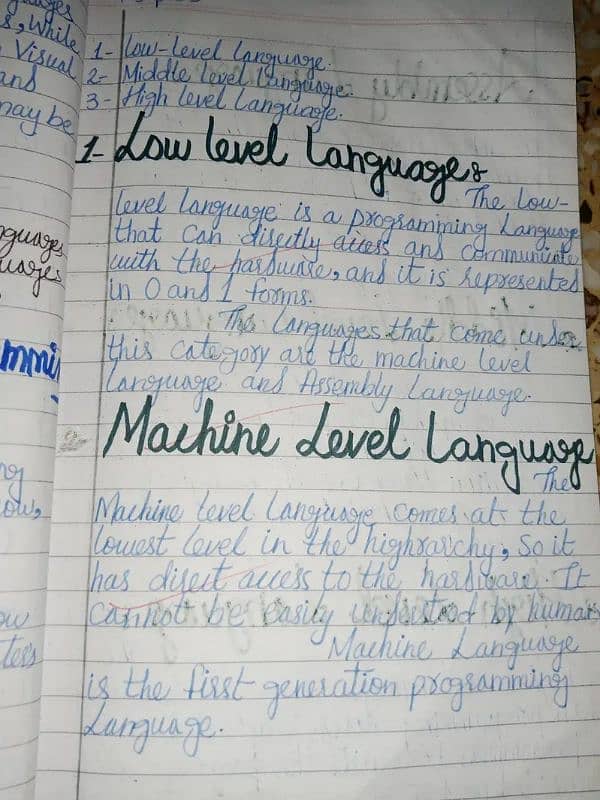 guages
s, while
Visual
and
may be
guages
uages
mmi
ow,
ow
ters
1- Low-level language.
2- Middle level language.
3- High level language.
1- Low level Languages
The Low-
level language is a programming Language
that can directly access and communicate
with the hardware, and it is represented
in 0 and 1 forms.
The languages that come under
this category are the machine level
language and Assembly Language.
Machine Level Language
The
Machine level Language comes at the
lowest level in the highrarchy, So it
has direct access to the hardware. It
cannot be easily understood by humans
Machine Language
is the first generation programming
Language.